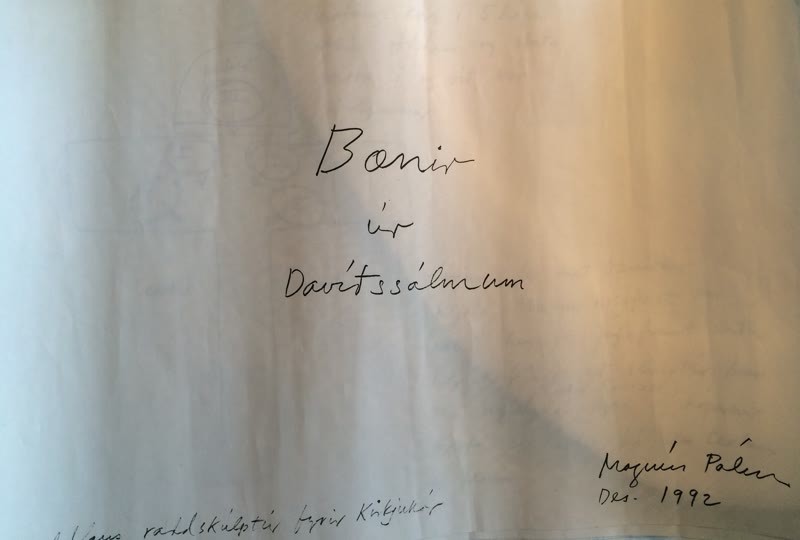 Bænir
úr
Davíðssálmum
Magnús Pálsson
Des. 1992
raddskúlptúr fyrir Kirkjukór